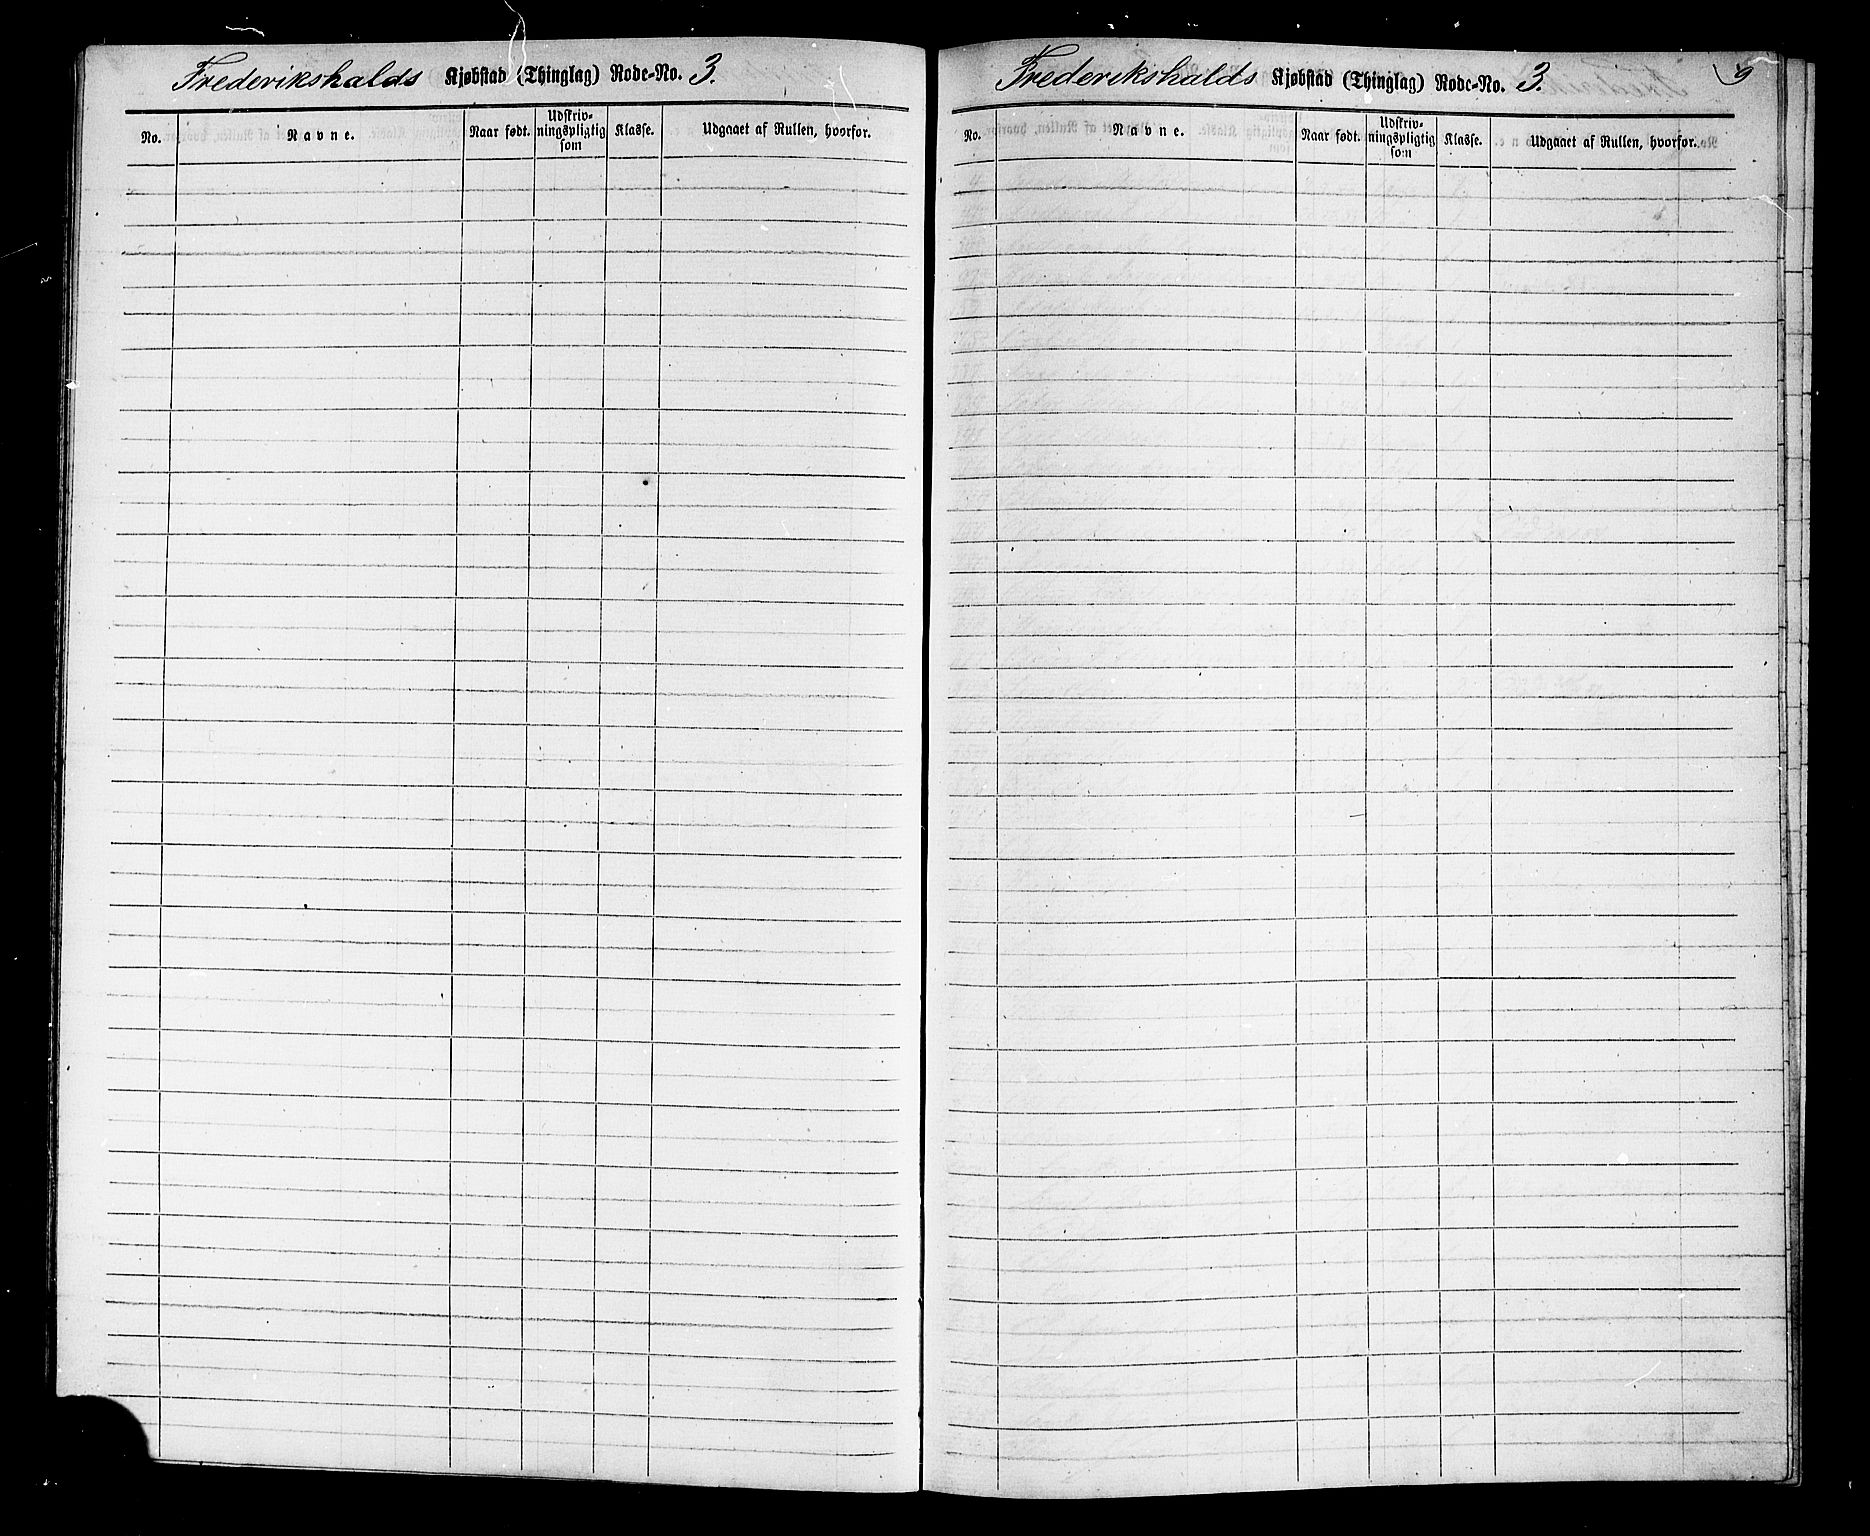 Frederikshalds Kjøbstad (Thinglag) Rode-No. 3.
No. Navne. Naar født. Udskriv-ningspligtig som Klasse. Udgaaet af Rullen, hvorfor.
Frederikshalds Kjøbstad (Thinglag) Rode-No. 3. 9
No. Navne. Naar født. Udskriv-ningspligtig som Klasse. Udgaaet af Rullen, hvorfor.